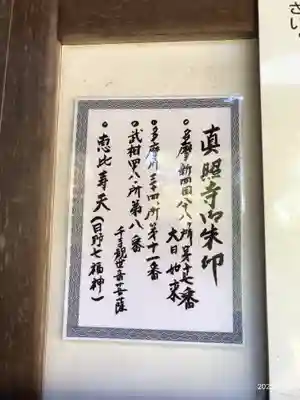 さい。
真照寺御朱印
・多摩新四国八十八所第十七番
大日如来
・多摩川三十四所第十一番
・武相四十八所第八番
千手観世音菩薩
・恵比寿天(日野七福神)